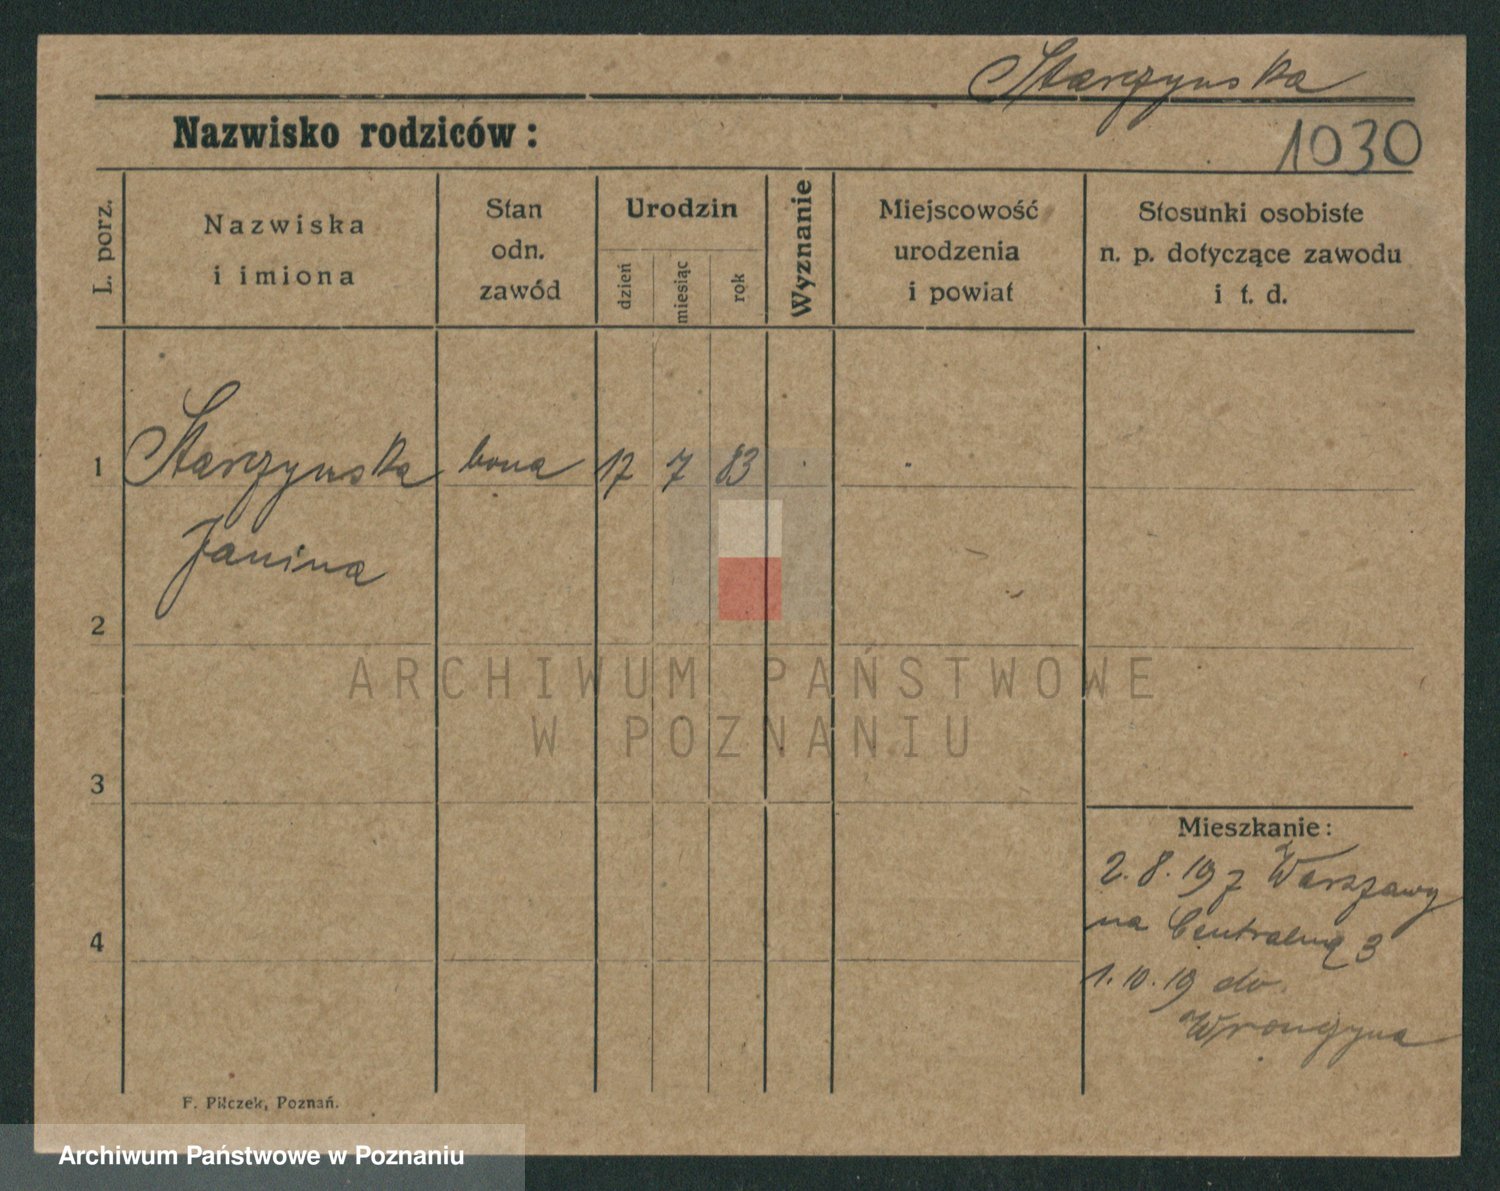 Starzynska
Nazwisko rodziców:
1030
L. porz.
Nazwiska
i imiona
Stan
odn.
zawód
Urodzin
dzień
miesiąc
rok
Wyznanie
Miejscowość
urodzenia
i powiat
Stosunki osobiste
n. p. dotyczące zawodu
i t. d.
1 Starzynska bona 17 7 83
Janina
2
ARCHIWUM PAŃSTWOWE
W POZNANIU
3
Mieszkanie:
2.8.19 z Warszawy
na Centralną 3
4
1.10.19 do
F. Pilczek, Poznań.
Archiwum Państwowe w Poznaniu